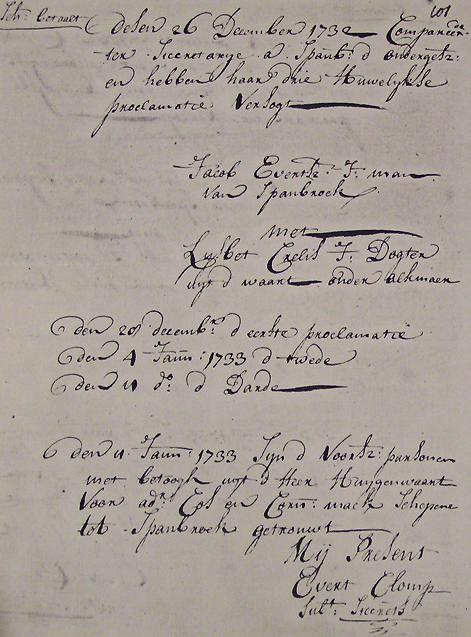 101
Sch: betaalt
desen 26 December 1732 Compareer-
ter Secretarije a Spanb: d ondergetz:
en hebben haar drie Huwelijkse
proclamatie Versogt
Jacob Evertsz: J: man
van Spanbroek
met
Lysbet Crelis J: Dogter
uijt d waart onder alkmaer
den 28 decembr d eerste proclamatie
den 4 Jann: 1733 d twede
den 11 do: d Darde
den 11 Jann: 1733 Sijn d Voorsz: parsonen
met betoogh uijt d Heer Huijgenwaart
Voor adr Cos en Corn: Schepene
tot Spanbroek getrouwt
Mij Present
Evert Clomp
Subt: Secrets